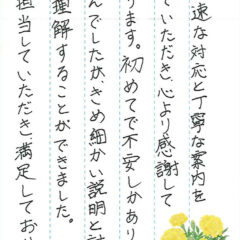 速な対応と丁寧な案内を
ていただき、心より感謝して
ります。初めてで不安しかあり
んでしたが、きめ細かい説明と
理解することができました。
担当していただき、満足してお